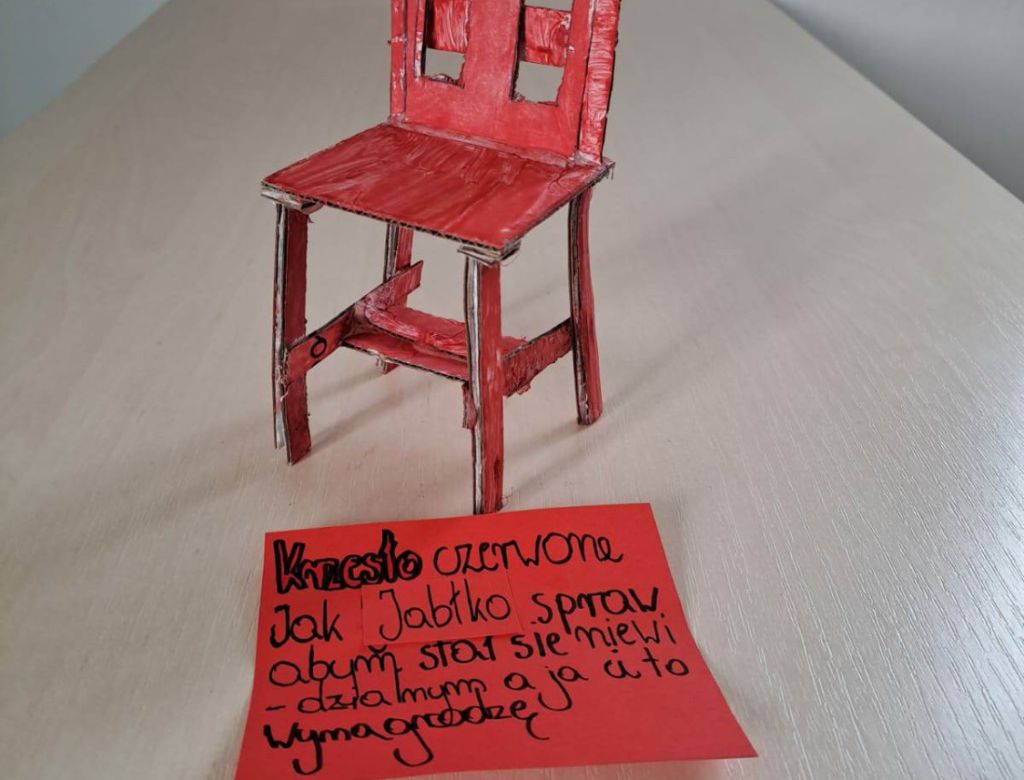 Krzesło czerwone
Jak Jabłko spraw
abym stał się niewi
-dzialnym a ja ci to
wymagrodzę